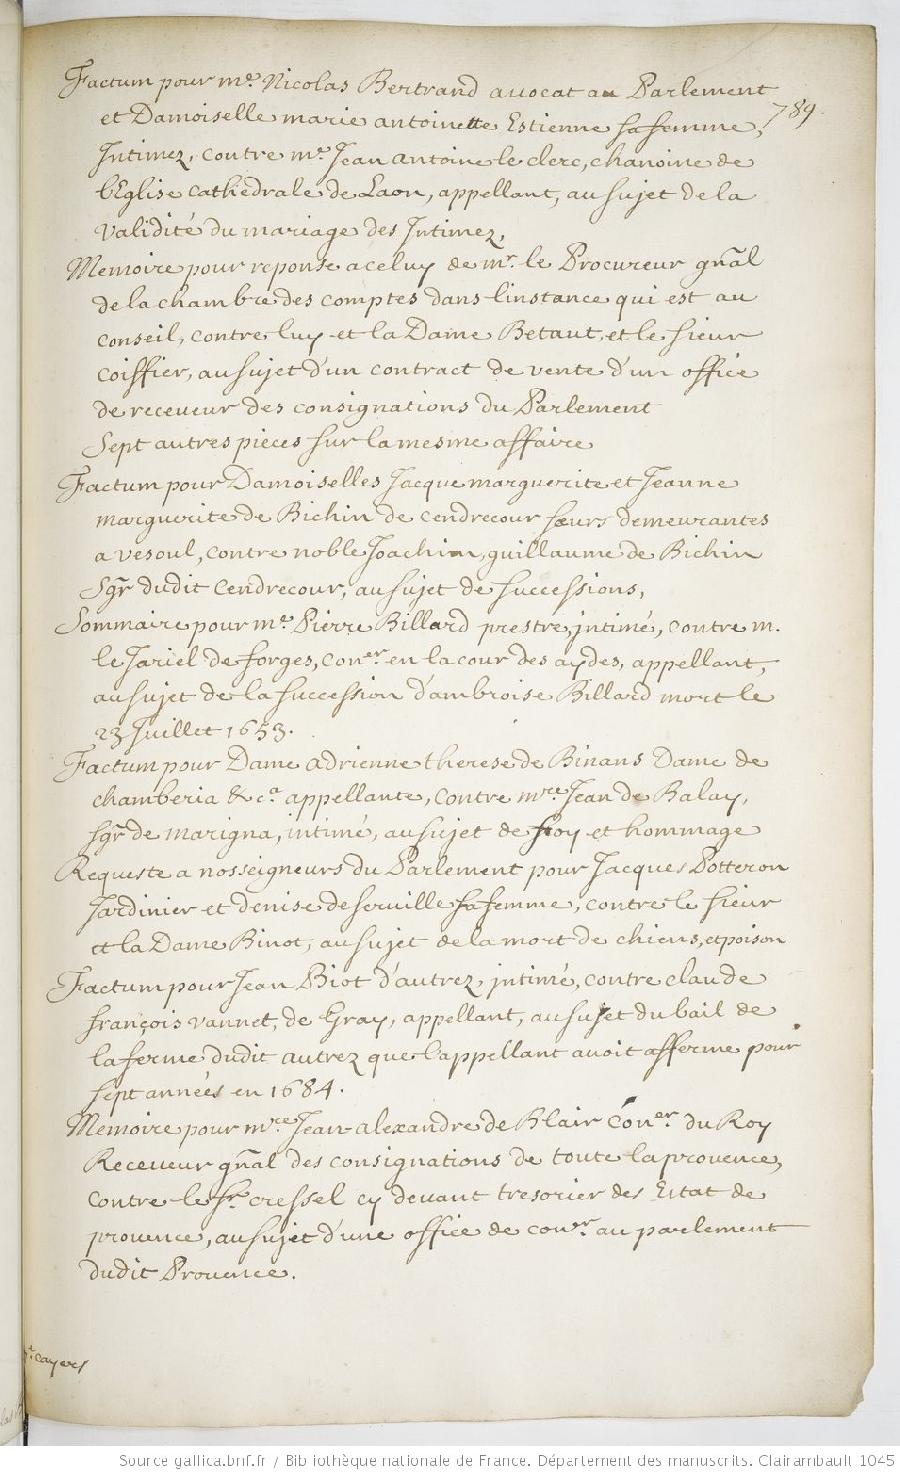 Factum pour me. Nicolas Bertrand auocat au Parlement
789
et Damoiselle marie antoinette Estienne sa femme,
Intimez, contre mr. Jean antoine le clerc, chanoine de
l'Eglise cathedrale de Laon, appellant, au sujet de la
validité du mariage des Intimez,
Memoire pour reponse a celuy de mr. le Procureur gñal
de la chambre des comptes dans l'instance qui est au
conseil, contre luy et la Dame Betaut, et le sieur
coiffier, au sujet d'un contract de vente d'un office
de receueur des consignations du Parlement
Sept autres pieces sur la mesme affaire
Factum pour Damoiselles Jacque marguerite et Jeanne
marguerite de Bichin de cendrecour sœurs demeurantes
a vesoul, contre noble Joachim, guillaume de Bichin
Sgr dudit Cendrecour, au sujet de successions,
Sommaire pour me. Pierre Billard prestre, intimé, contre m.
le Tariel de forges, coner. en la cour des aydes, appellant,
au sujet de la succession d'ambroise Billard mort le
23 Juillet 1653.
Factum pour Dame adrienne therese de Binans Dame de
chamberia &ca. appellante, contre mre. Jean de Balay,
sgr de marigna, intimé, au sujet de foy et hommage
Requeste a nosseigneurs du Parlement pour Jacques Potteron
Jardinier et denise deseruille sa femme, contre le sieur
et la Dame Binot, au sujet de la mort de chiens, et poison
Factum pour Jean Biot d'autrez, intimé, contre claude
françois vannet, de Gray, appellant, au sujet du bail de
la ferme dudit autrez que l'appellant auoit afferme pour
sept années en 1684.
Memoire pour mre. Jean-alexandre de Blair Coner. du Roy
Receueur gñal des consignations de toute la prouence,
contre le Sr. cressel cy deuant tresorier des Estat de
prouence, au sujet d'une office de coner. au parlement
dudit Prouence.
cayers
Source gallica.bnf.fr / Bibliothèque nationale de France. Département des manuscrits. Clairambault 1045